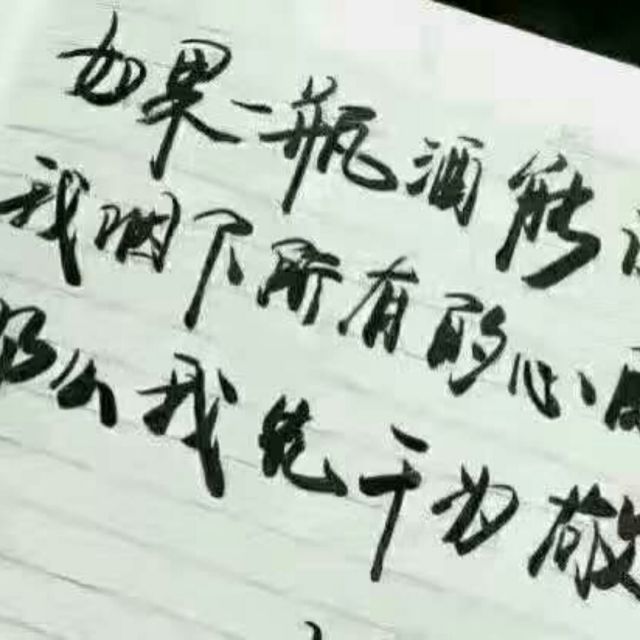 如果一瓶酒能
我咽下所有的心
那么我先干为敬